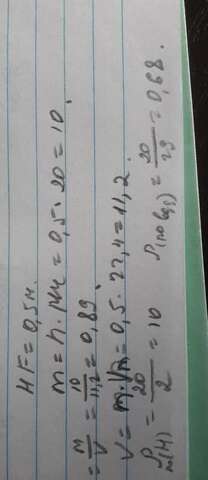 HF=0,5м.
m=n·Mч=0,5·20=10.
=m/V=10/11,2=0,89.
V=n·Vm=0,5·22,4=11,2.
D(H)=20/2=10 D(по возд)=20/29=0,68.